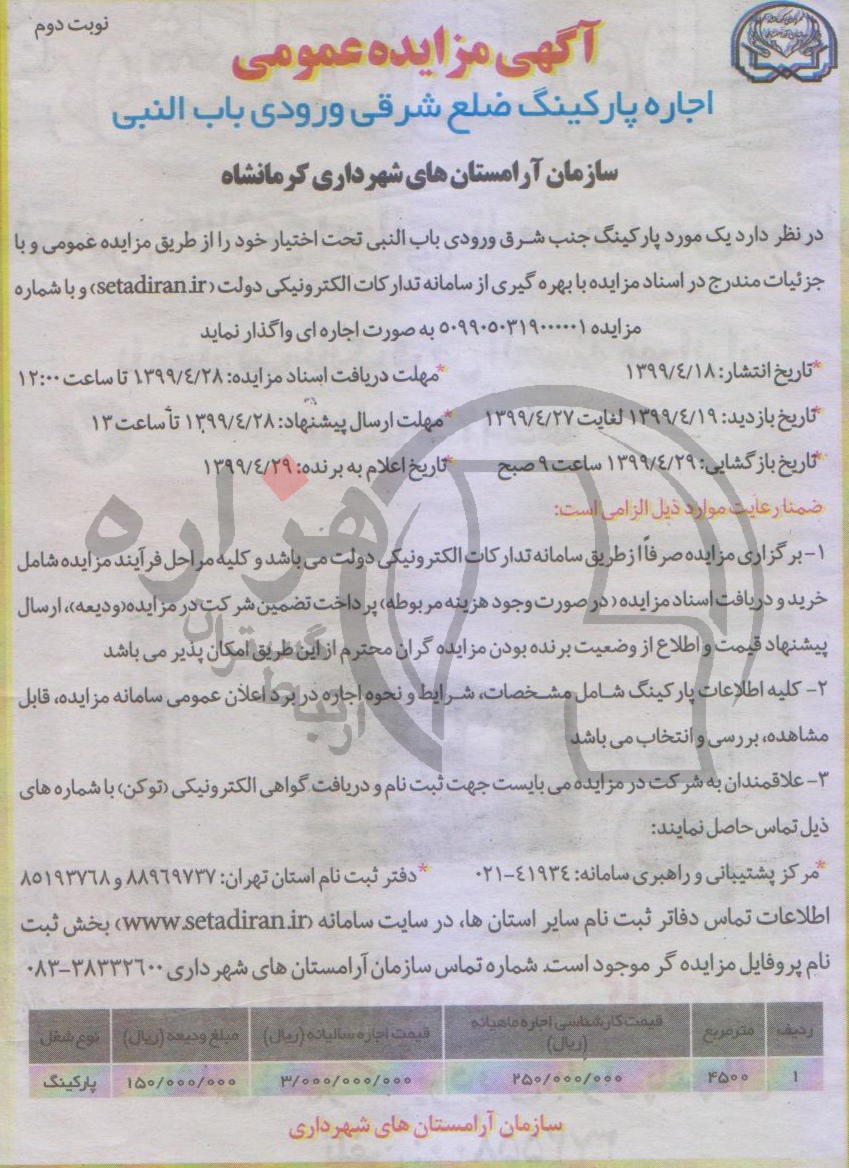 نوبت دوم
آگهی مزایده عمومی
اجاره پارکینگ ضلع شرقی ورودی باب النبی
سازمان آرامستان های شهرداری کرمانشاه
در نظر دارد یک مورد پارکینگ جنب شرق ورودی باب النبی تحت اختیار خود را از طریق مزایده عمومی و با
جزئیات مندرج در اسناد مزایده با بهره گیری از سامانه تدارکات الکترونیکی دولت (setadiran.ir) و با شماره
مزایده ۵۰۹۹۰۵۰۳۱۹۰۰۰۰۰۱ به صورت اجاره ای واگذار نماید
*تاریخ انتشار: ۱۳۹۹/٤/۱۸ *مهلت دریافت اسناد مزایده: ۱۳۹۹/٤/۲۸ تا ساعت ۱۲:۰۰
*تاریخ بازدید: ۱۳۹۹/٤/۱۹ لغایت ۱۳۹۹/٤/۲۷ *مهلت ارسال پیشنهاد: ۱۳۹۹/٤/۲۸ تا ساعت ۱۳
*تاریخ بازگشایی: ۱۳۹۹/٤/۲۹ ساعت ۹ صبح *تاریخ اعلام به برنده: ۱۳۹۹/٤/۲۹
ضمنا رعایت موارد ذیل الزامی است:
۱- برگزاری مزایده صرفاً از طریق سامانه تدارکات الکترونیکی دولت می باشد و کلیه مراحل فرآیند مزایده شامل
خرید و دریافت اسناد مزایده (در صورت وجود هزینه مربوطه) پرداخت تضمین شرکت در مزایده(ودیعه)، ارسال
پیشنهاد قیمت و اطلاع از وضعیت برنده بودن مزایده گران محترم از این طریق امکان پذیر می باشد
۲- کلیه اطلاعات پارکینگ شامل مشخصات، شرایط و نحوه اجاره در برد اعلان عمومی سامانه مزایده، قابل
مشاهده، بررسی و انتخاب می باشد
۳- علاقمندان به شرکت در مزایده می بایست جهت ثبت نام و دریافت گواهی الکترونیکی (توکن) با شماره های
ذیل تماس حاصل نمایند:
*مرکز پشتیبانی و راهبری سامانه: ٤۱۹۳٤-۰۲۱ *دفتر ثبت نام استان تهران: ۸۸۹٦۹۷۳۷ و ۸۵۱۹۳۷٦۸
اطلاعات تماس دفاتر ثبت نام سایر استان ها، در سایت سامانه (www.setadiran.ir) بخش ثبت
نام پروفایل مزایده گر موجود است. شماره تماس سازمان آرامستان های شهرداری ۳۸۳۳۲٦۰۰-۰۸۳
ردیف مترمربع قیمت کارشناسی اجاره ماهیانه (ریال) قیمت اجاره سالیانه (ریال) مبلغ ودیعه (ریال) نوع شغل
۱ ۴۵۰۰ ۲۵۰/۰۰۰/۰۰۰ ۳/۰۰۰/۰۰۰/۰۰۰ ۱۵۰/۰۰۰/۰۰۰ پارکینگ
سازمان آرامستان های شهرداری
هزاره